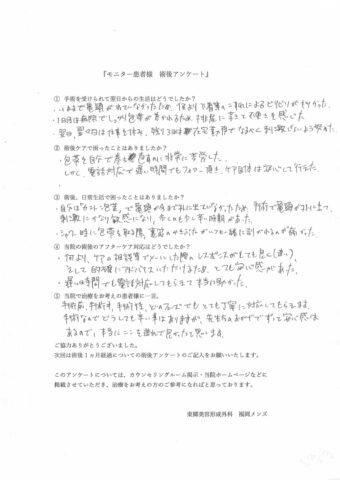 『モニター患者様 術後アンケート』
① 手術を受けられて翌日からの生活はどうでしたか？
・いままで亀頭が出ていなかったため、何よりも着衣のこすれによるピリピリがすごかった。
・1日目は病院でしっかり包帯が巻かれるため、
・翌日、翌々日は仕事を休み、残り3日は在宅勤務でなるべく刺激がないよう努めた。
② 術後ケアで困ったことはありましたか？
・包帯を自分で巻く
しかし、電話対応で遅い時間でもフォロー頂き、ケア自体は安心して行えた。
③ 術後、日常生活で困ったことはありましたか？
・自分はカントン包茎で亀頭が今まで外に出ていなかったため、手術で亀頭が外に出て、
刺激にかなり敏感になり、歩くのも少し辛い時期があった。
・シャワー時に包帯を取る際、
④ 当院の術後のアフターケア対応はどうでしたか？
・何より、ケアの相談等でメールした際のレスポンスがとても良く(速い)、
そして的確にアドバイスいただけるため、とても安心感があった。
・遅い時間でも電話対応してもらえて本当に助かった。
⑤ 当院で治療をお考えの患者様に一言。
手術前、手術中、手術後、どのフェーズでもとても丁寧に対応してもらえます。
手術なのでどうしても辛い事はありますが、先生方のおかげでずっと安心感は
あるので、本当にここを選んで良かったと思います。
ご協力ありがとうございました。
次回は術後1ヵ月経過についての術後アンケートのご記入をお願いいたします。
このアンケートについては、カウンセリングルーム掲示・当院ホームページなどに
掲載させていただき、治療をお考えの方のご参考になればと思っております。
東郷美容形成外科 福岡メンズ